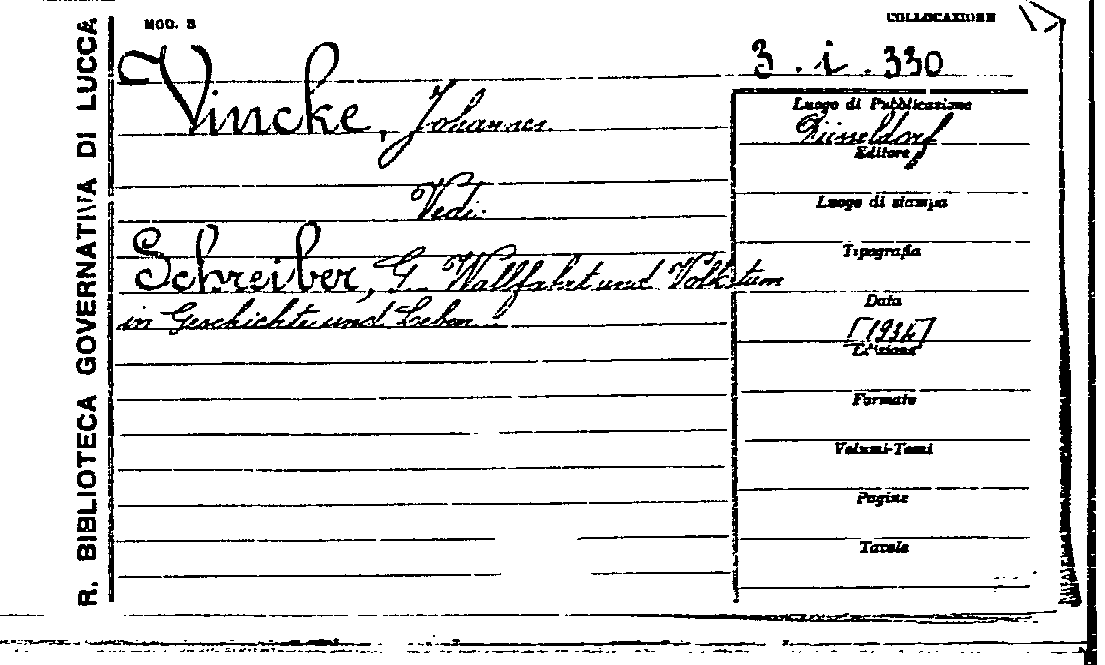 R. BIBLIOTECA GOVERNATIVA DI LUCCA
MOD. B
COLLOCAZIONE
3 . i . 330
Vincke, Johannes.
Vedi:
Schreiber, G. Wallfahrt und Volkstum
in Geschichte und Leben.
Luogo di Pubblicazione
Düsseldorf
Editore
Luogo di stampa
Tipografia
Data
[1934]
Edizione
Formato
Volumi-Tomi
Pagine
Tavole